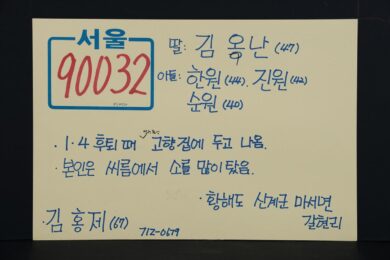 서울
90032
딸: 김옥난(47)
아들: 한원(44). 진원(42)
순원(40)
· 1·4 후퇴때 고향집에 두고 나옴.
· 본인은 씨름에서 소를 많이 탔음.
· 황해도 신계군 마서면
갈현리
· 김홍제(67) 712-0579